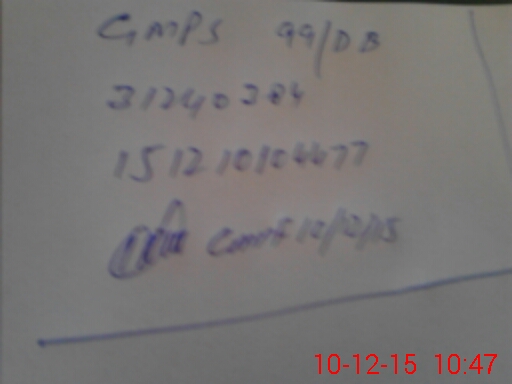 GMPS 99/DB
31240384
151210104477
Comf 10/12/15
10-12-15 10:47